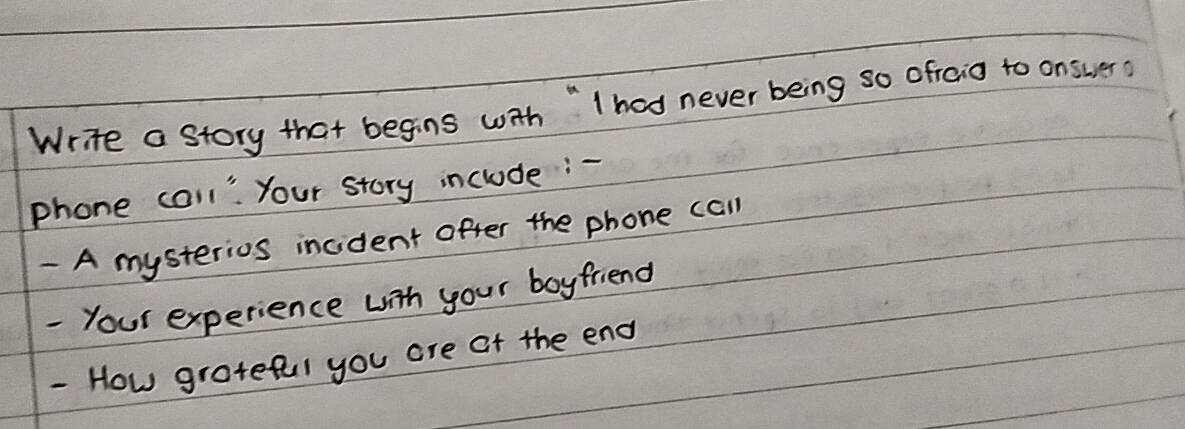 Write a story that begins with "I had never being so afraid to answer a
phone call". Your story include :-
- A mysterios incident after the phone call
- Your experience with your boyfriend
- How grateful you are at the end